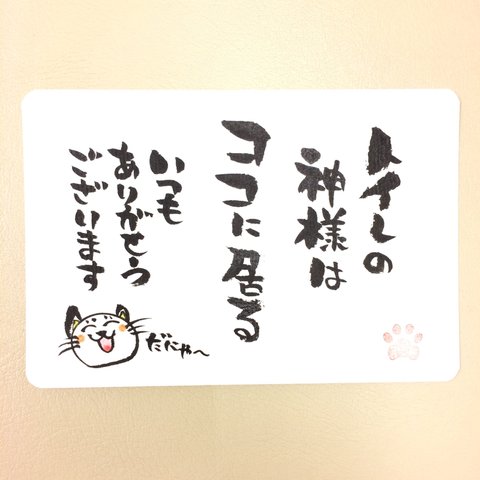 トイレの
神様は
ココに居る
いつも
ありがとう
ございます
だにゃ〜